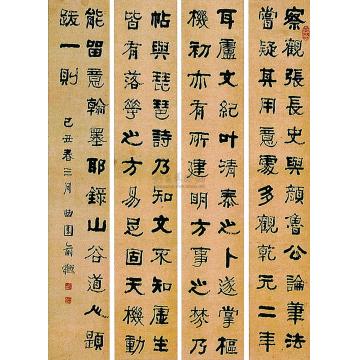 察觀張長史與顏魯公論筆法
嘗疑其用意處多觀乾元二年
耳盧文紀叶清泰之卜遂掌樞
機初亦有所建明方事之棼乃
帖與琵琶詩乃知文不知虛生
皆有落華之方易足固天機動
能留意翰墨耶錄山谷道人題
跋一則
己丑春三月曲園俞樾